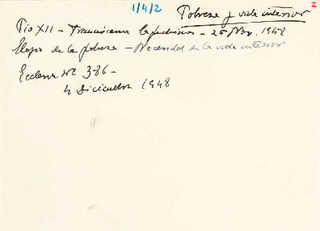 1/4/2
2
Pobreza y vida interior
Pío XII - Franciscanos Capuchinos - 25 Nov. 1948
Elogio de la pobreza - Necesidad de la vida interior
Ecclesia Nº 386 -
4 Diciembre 1948